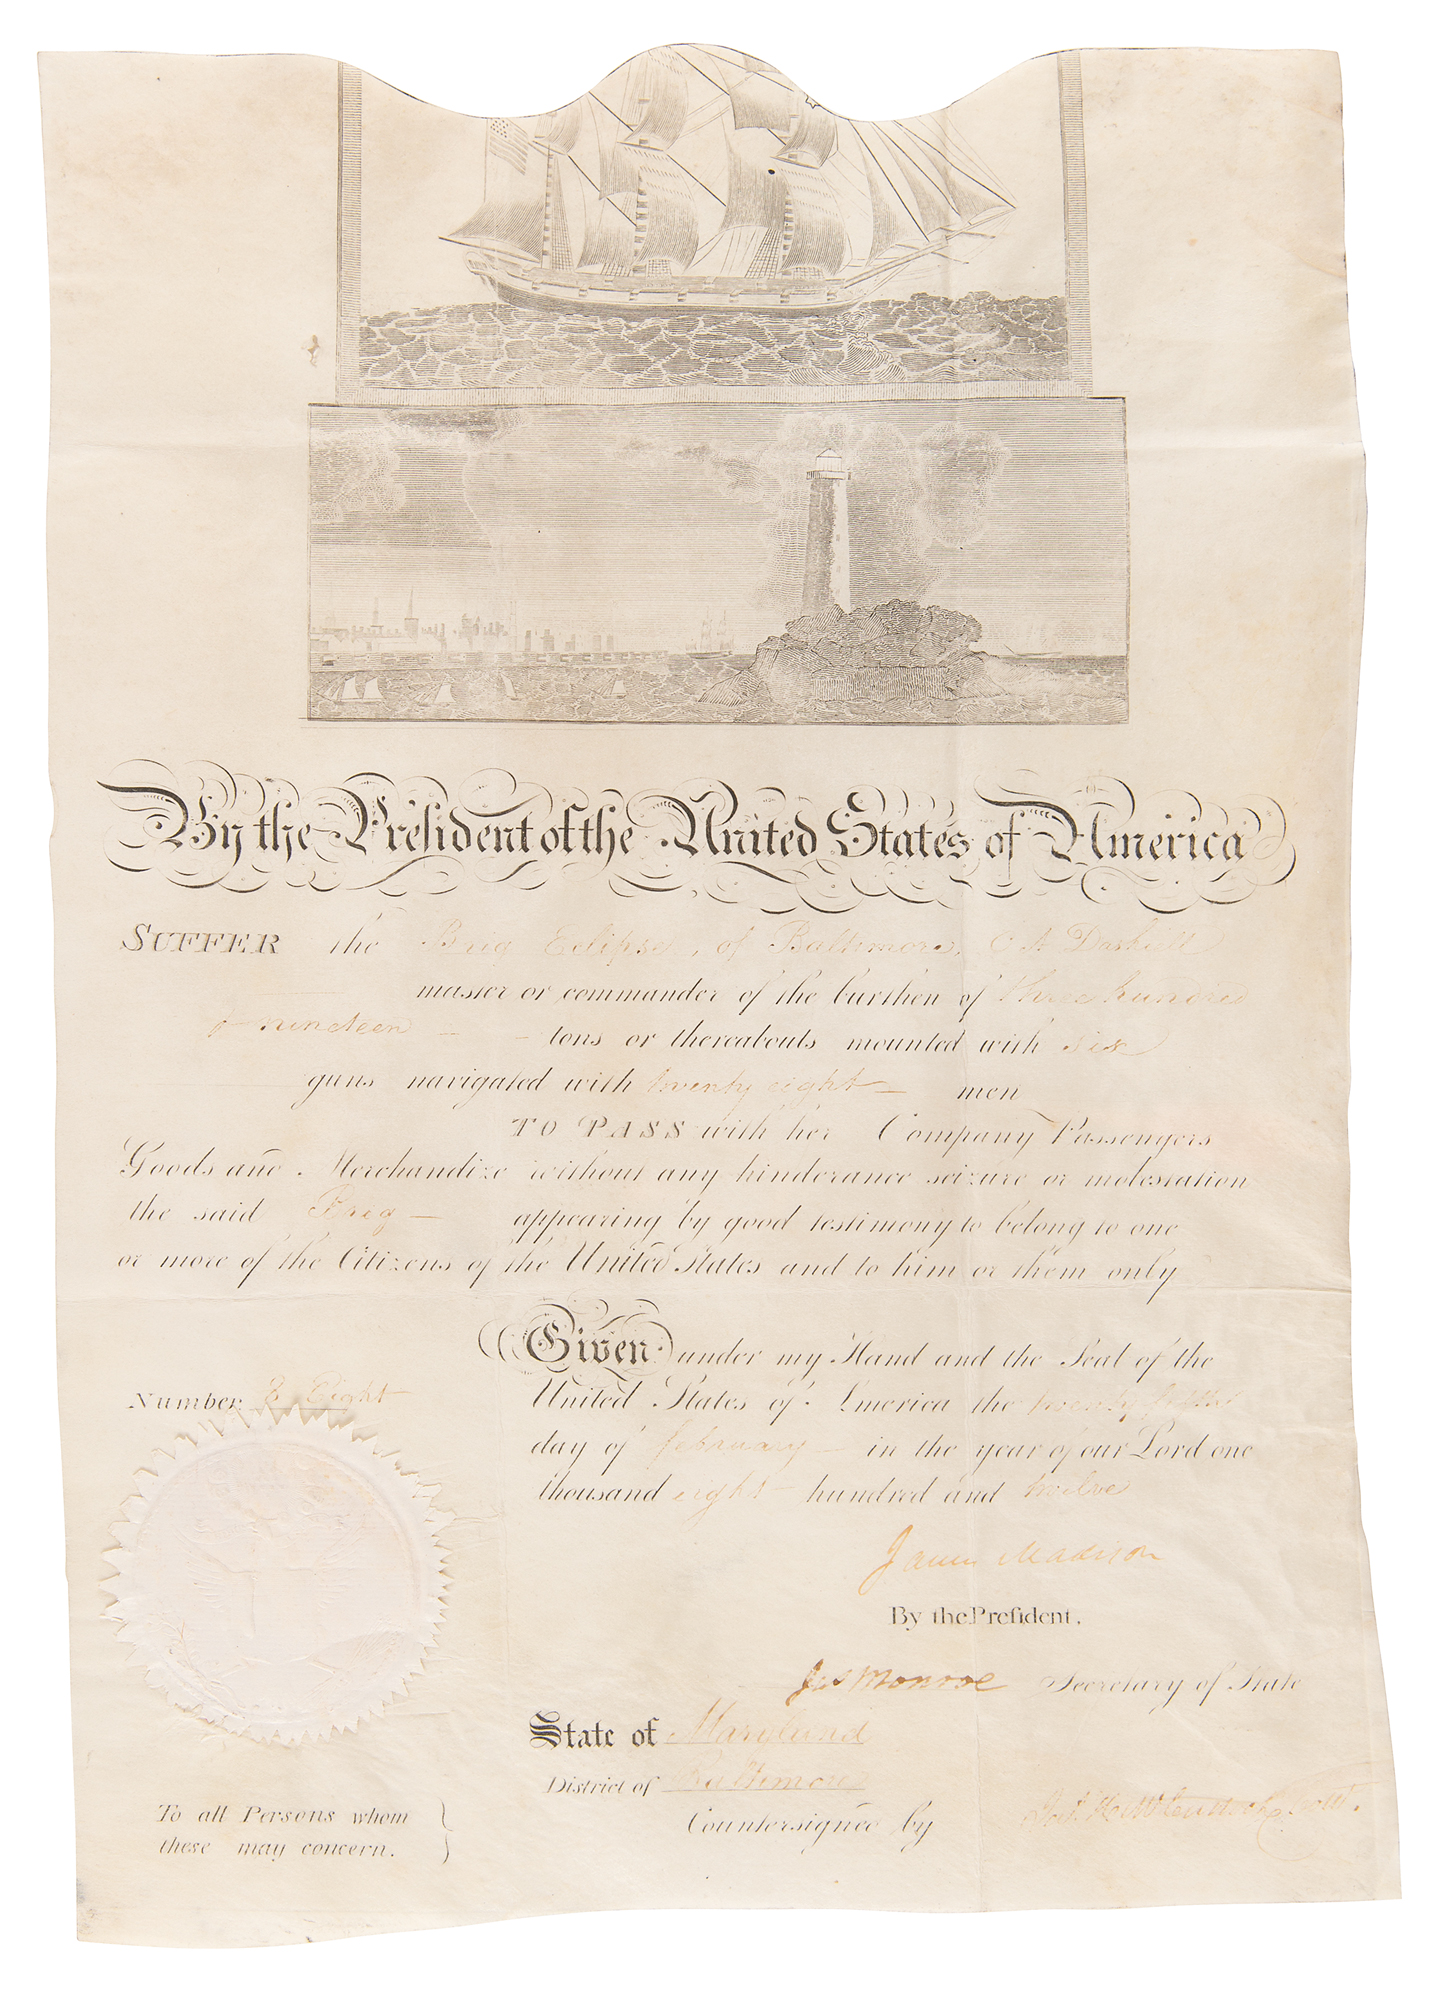 By the President of the United States of America
SUFFER the Brig Eclipse, of Baltimore, C A Dashiell
master or commander of the burthen of three hundred
& nineteen — - tons or thereabouts mounted with six
guns navigated with twenty eight — men
TO PASS with her Company Passengers
Goods and Merchandize without any hinderance seizure or molestation
the said Brig — appearing by good testimony to belong to one
or more of the Citizens of the United States and to him or them only
Given under my Hand and the Seal of the
Number Eight
United States of America the twenty fifth
day of february — in the year of our Lord one
thousand eight hundred and twelve
James Madison
By the President.
Jas Monroe Secretary of State
State of Maryland
District of Baltimore
To all Persons whom
these may concern.
Countersigned by